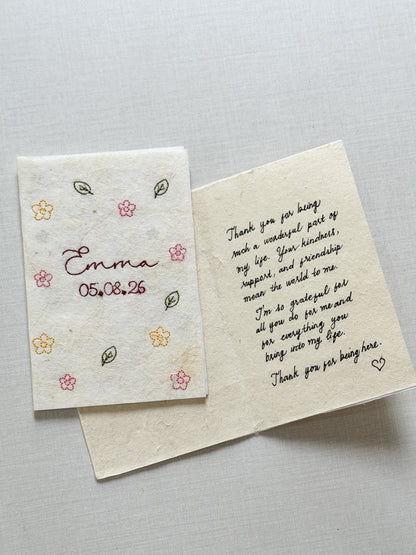 Emma
05.08.26
Thank you for being
such a wonderful part of
my life. Your kindness,
support, and friendship
mean the world to me.
I'm so grateful for
all you do for me and
for everything you
bring into my life.
Thank you for being here.